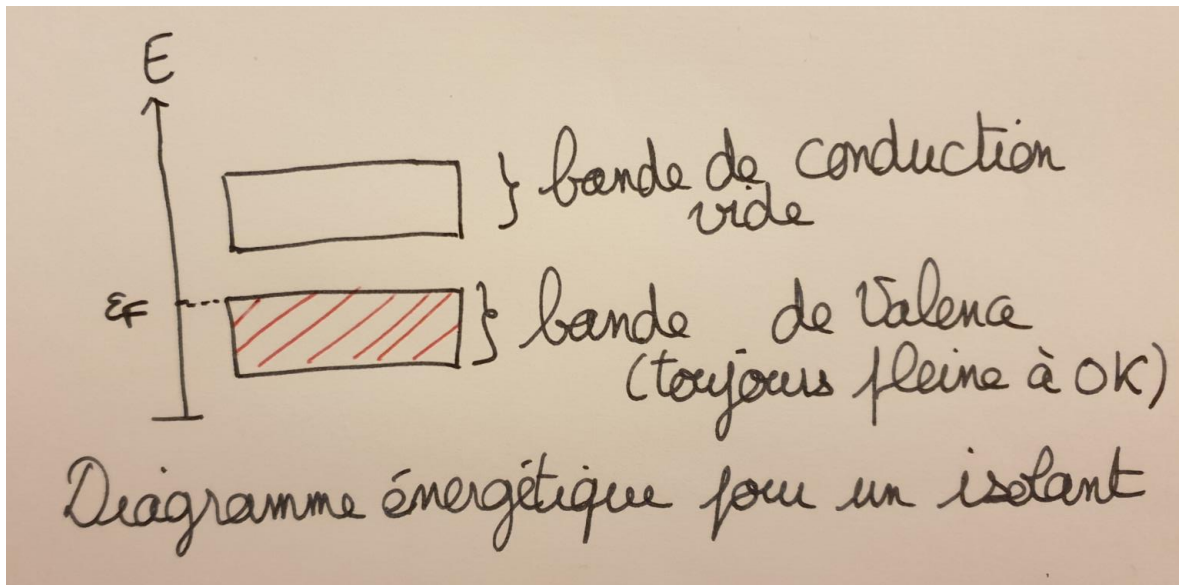 E
} bande de conduction
vide
EF
} bande de Valence
(toujours pleine à 0K)
Diagramme énergétique pour un isolant